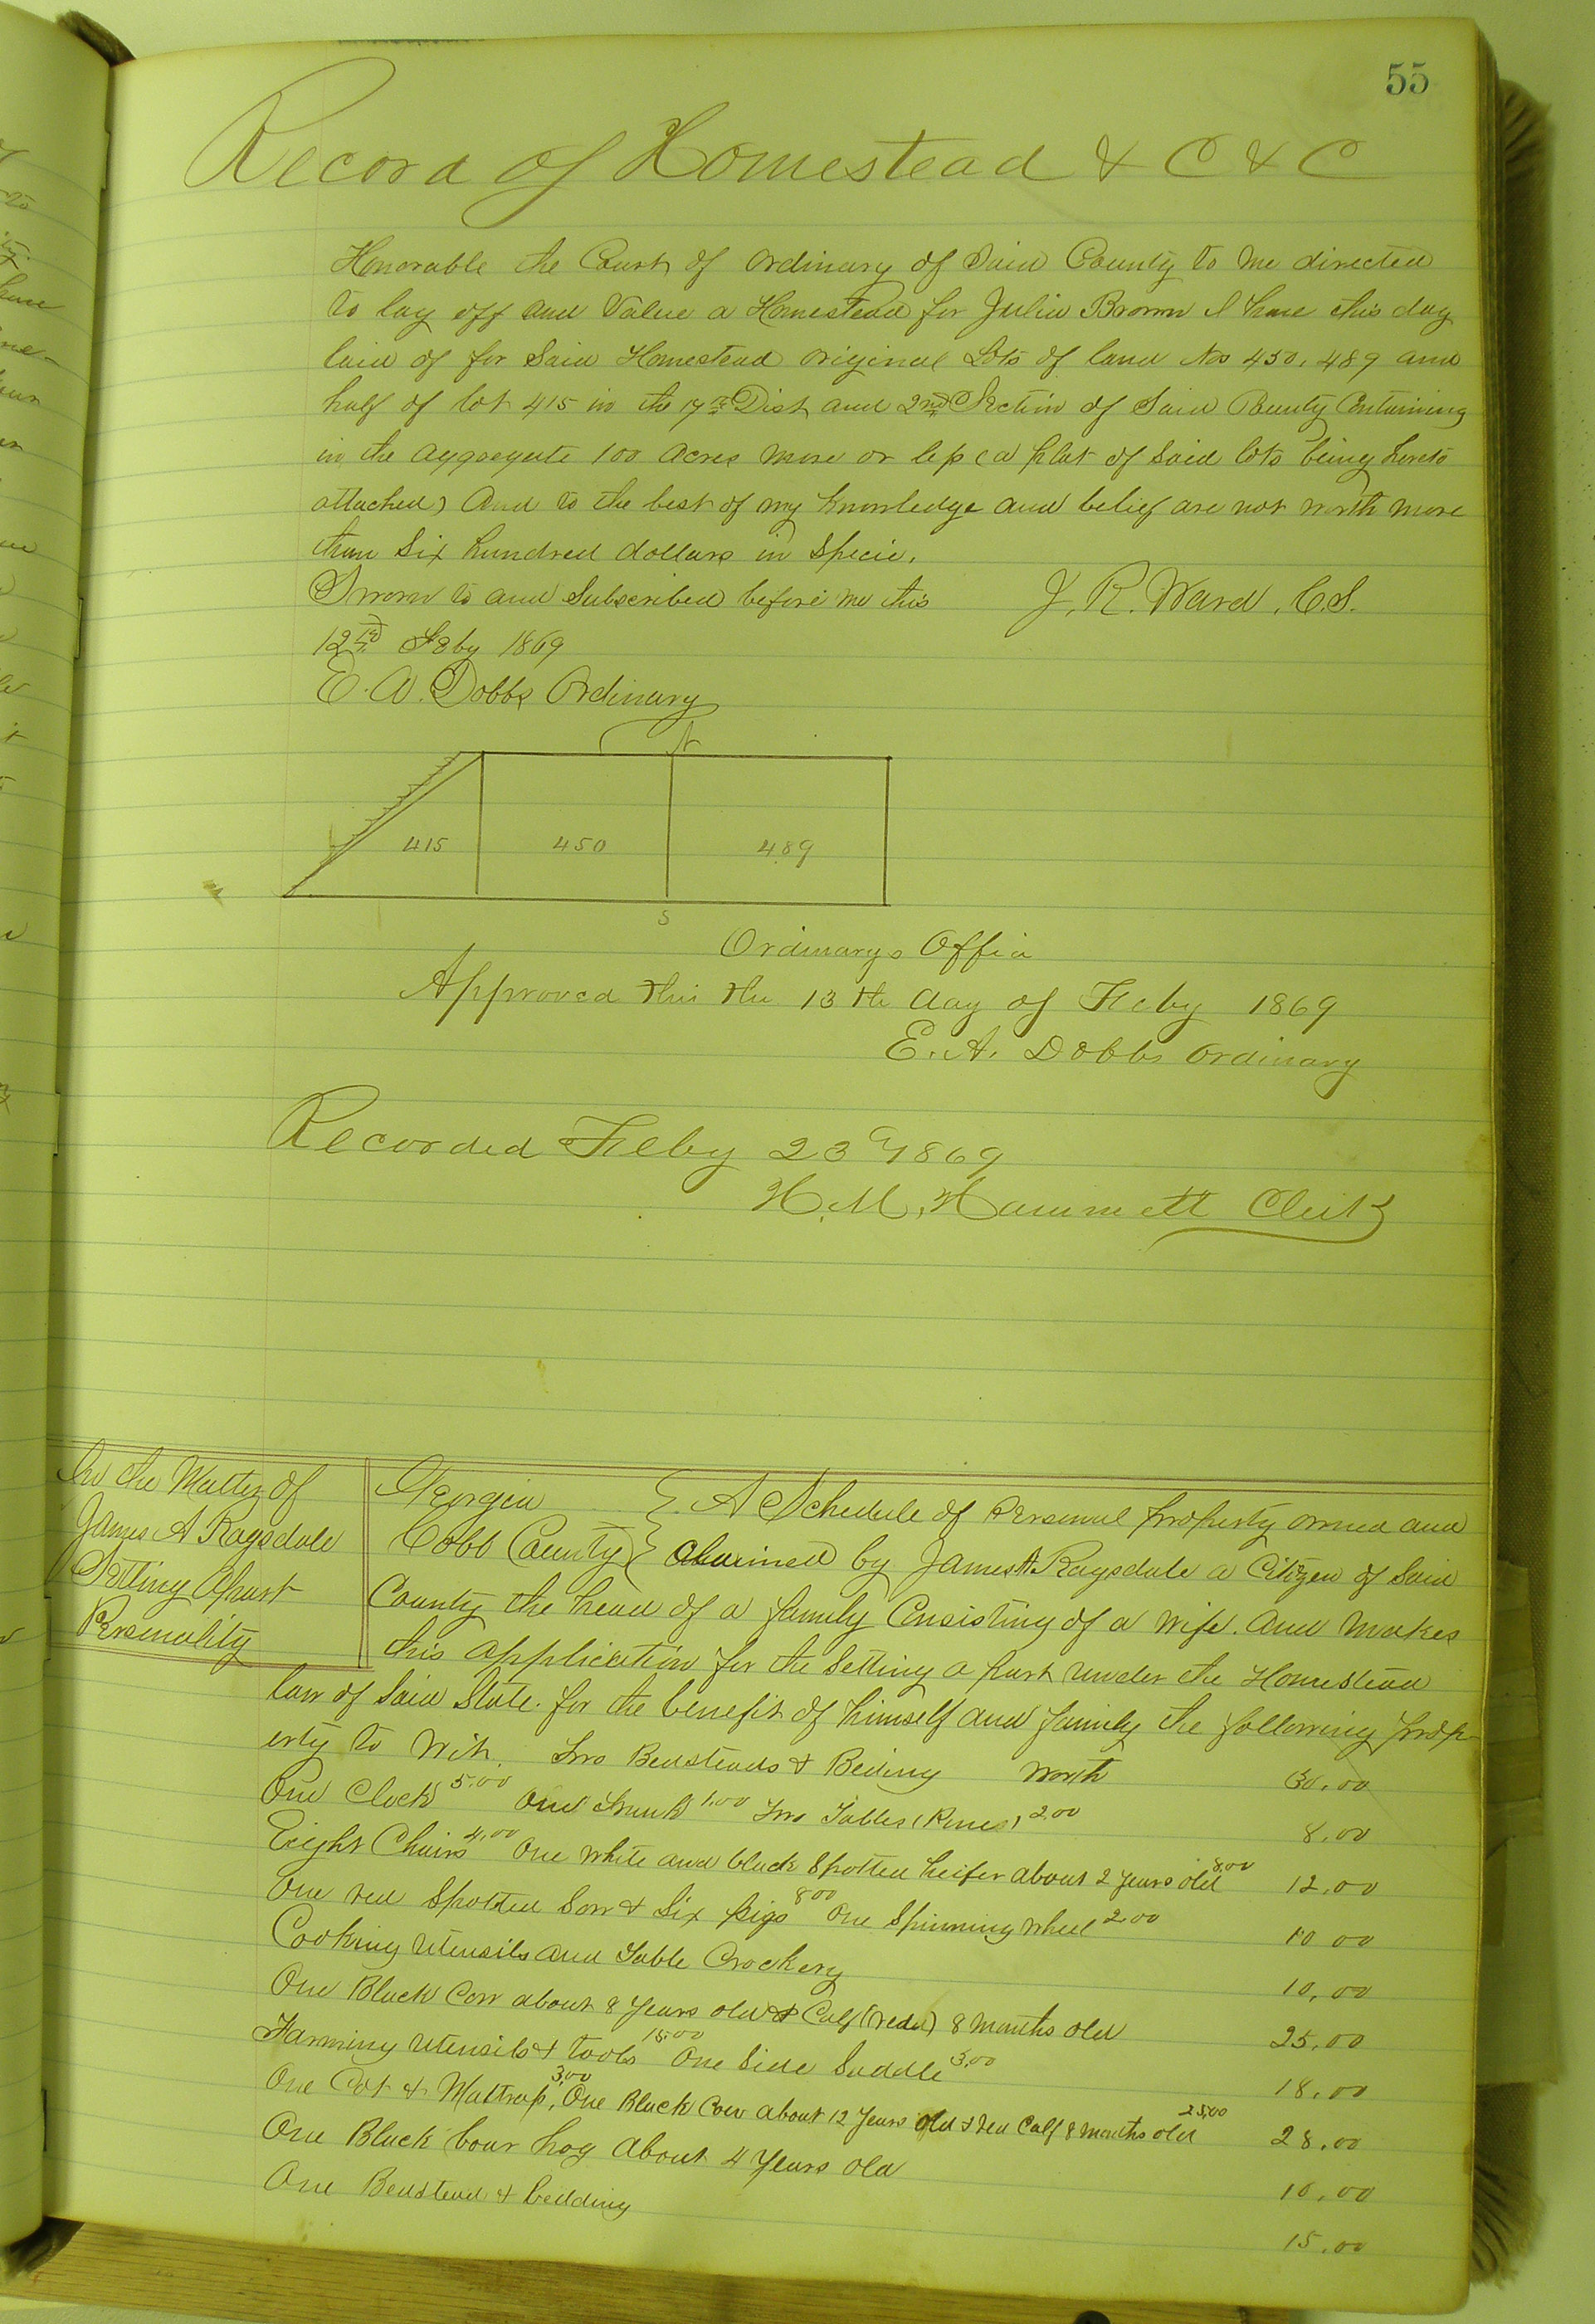 55
Record of Homestead & C & C
Honorable the Court of Ordinary of Said County to me directed
to lay off and Value a Homestead for Julia Brown I have this day
laid of for Said Homestead Original Lots of land Nos 450, 489 and
half of lot 415 in the 17th Dist and 2nd Section of Said County Containing
in the aggregate 100 Acres more or less (a plat of Said lots being hereto
attached) And to the best of my knowledge and belief are not worth more
than Six hundred dollars in Specie.
Sworn to and Subscribed before me this J. R. Ward, C.S.
12th Feby 1869
E. A. Dobbs Ordinary
N
415 450 489
S
Ordinarys Office
Approved this the 13th day of Feby 1869
E. A. Dobbs Ordinary
Recorded Feby 23d 1869
H. M. Hammett Clerk
In the Matter of
James A Ragsdale
Setting Apart
Personality
Georgia } A Schedule of Personal property owned and
Cobb County } claimed by James A. Ragsdale a Citizen of Said
County the head of a family Consisting of a wife. and makes
this application for the Setting a part under the Homestead
law of Said State. for the benefit of himself and family the following prop
erty to Wit. Two Bedsteads & Beding Worth 30.00
One Clock 5.00 One Trunk 1.00 Two Tables (Pines) 2.00 8.00
Eight Chairs 4.00 One white and black Spotted heifer about 2 years old 8.00 12.00
One red Spotted Sow & Six pigs 8 00 One Spinning Wheel 2.00 10 00
Cooking Utensils and Table Crockery 10,00
One Black Cow about 8 Years old & Calf (red) 8 months old 25.00
Farming Utensils & tools 15.00 One Side Saddle 3.00 18.00
One Cot & Mattrass, 3.00 One Black Cow about 12 Years old & red Calf 8 months old 25.00 28.00
One Black boar hog about 4 Years old 10.00
One Bedstead & bedding 15.00